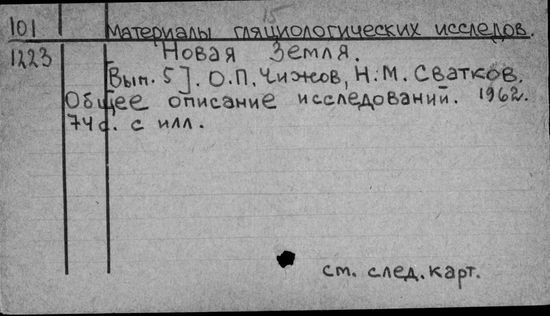 15
101 Материалы гляциологических исследов.
1223 Новая Земля.
[Вып. 5]. О.П. Чижов, Н.М. Сватков.
Общее описание исследований. 1962.
74 с. с илл.
см. след. карт.